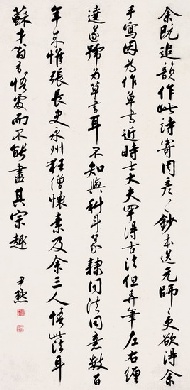 余既追韻作此詩寄周彥鈔本送元師更欲得余
手寫因為作草書近時士大夫罕得古法但弄筆左右纏
遶遂號為草書耳不知與科斗篆隸同法同意數百
年來惟張長史永州狂僧懷素及余三人悟此法耳
蘇才翁有悟處而不能盡其宗趣
尹默